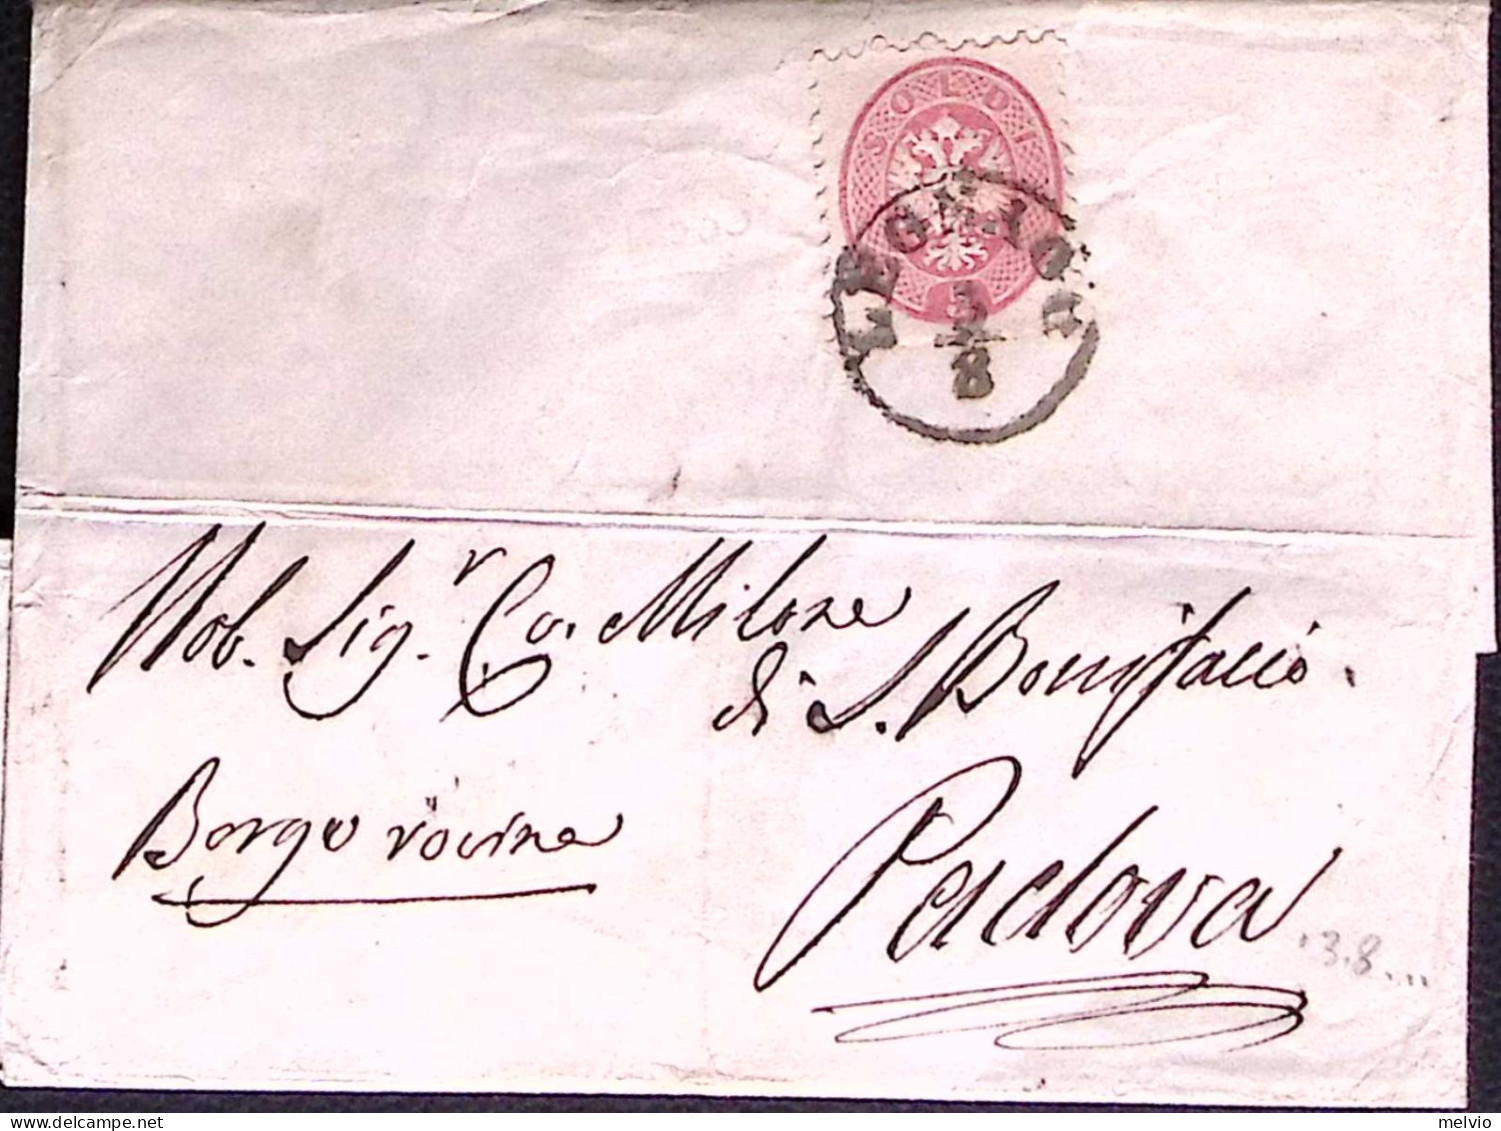 SOLDI
5
LEGNAGO
3
8
Nob. Sig.r Co. Milone
di S. Bonifacio.
Borgo vocine
Padova
3.8...
melvio